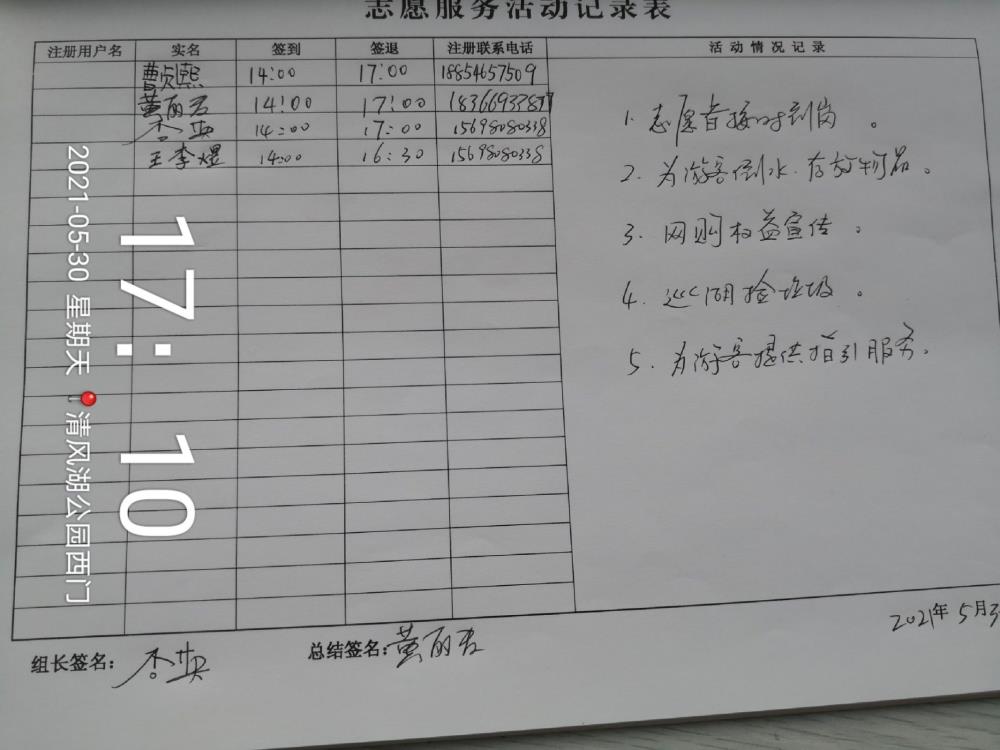 志愿服务活动记录表
注册用户名 实名 签到 签退 注册联系电话 活动情况记录
曹贞熙 14:00 17:00 18854657509
黄丽君 14:00 17:00
14:00 17:00 15698080338
王李煜 14:00 16:30 15698080338
1. 志愿者按时到岗。
2. 为游客倒水、存放物品。
3. 网购权益宣传。
4. 巡湖捡垃圾。
5. 为游客提供指引服务。
2021年5月3
组长签名:
总结签名:黄丽君
17:10
2021-05-30 星期天 清风湖公园西门